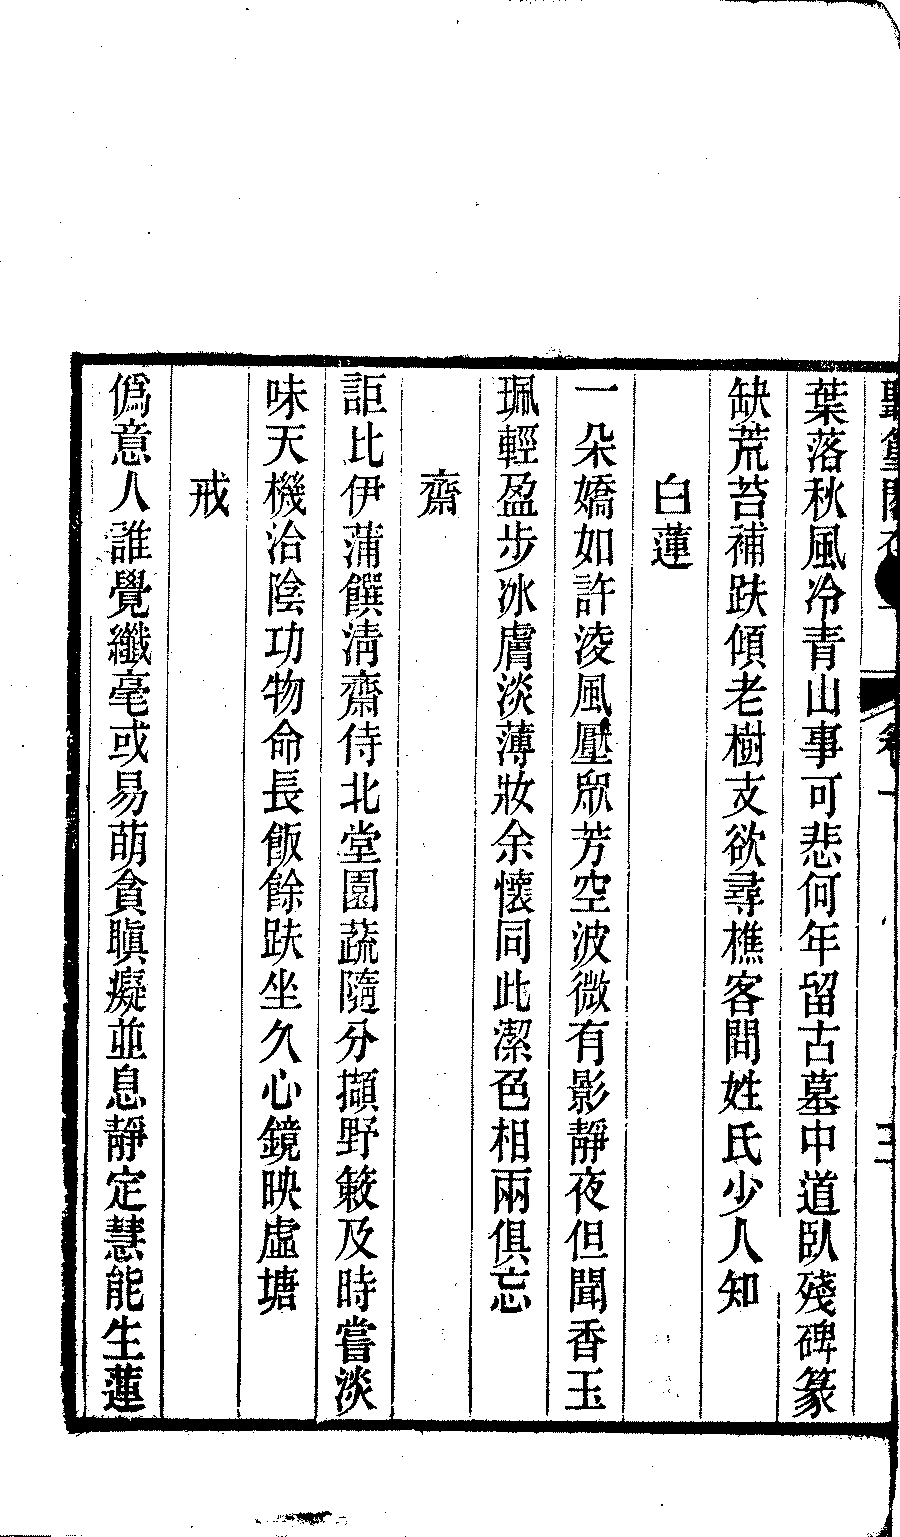 葉落秋風冷青山事可悲何年留古墓中道臥殘碑篆
缺荒苔補趺傾老樹支欲尋樵客問姓氏少人知
白蓮
一朵嬌如許淩風壓眾芳空波微有影靜夜但聞香玉
珮輕盈步冰膚淡薄妝余懷同此潔色相兩俱忘
齋
詎比伊蒲饌清齋侍北堂園蔬隨分擷野簌及時嘗淡
味天機洽陰功物命長飯餘趺坐久心鏡映虛塘
戒
偽意人誰覺纖毫或易萌貪瞋癡並息靜定慧能生蓮